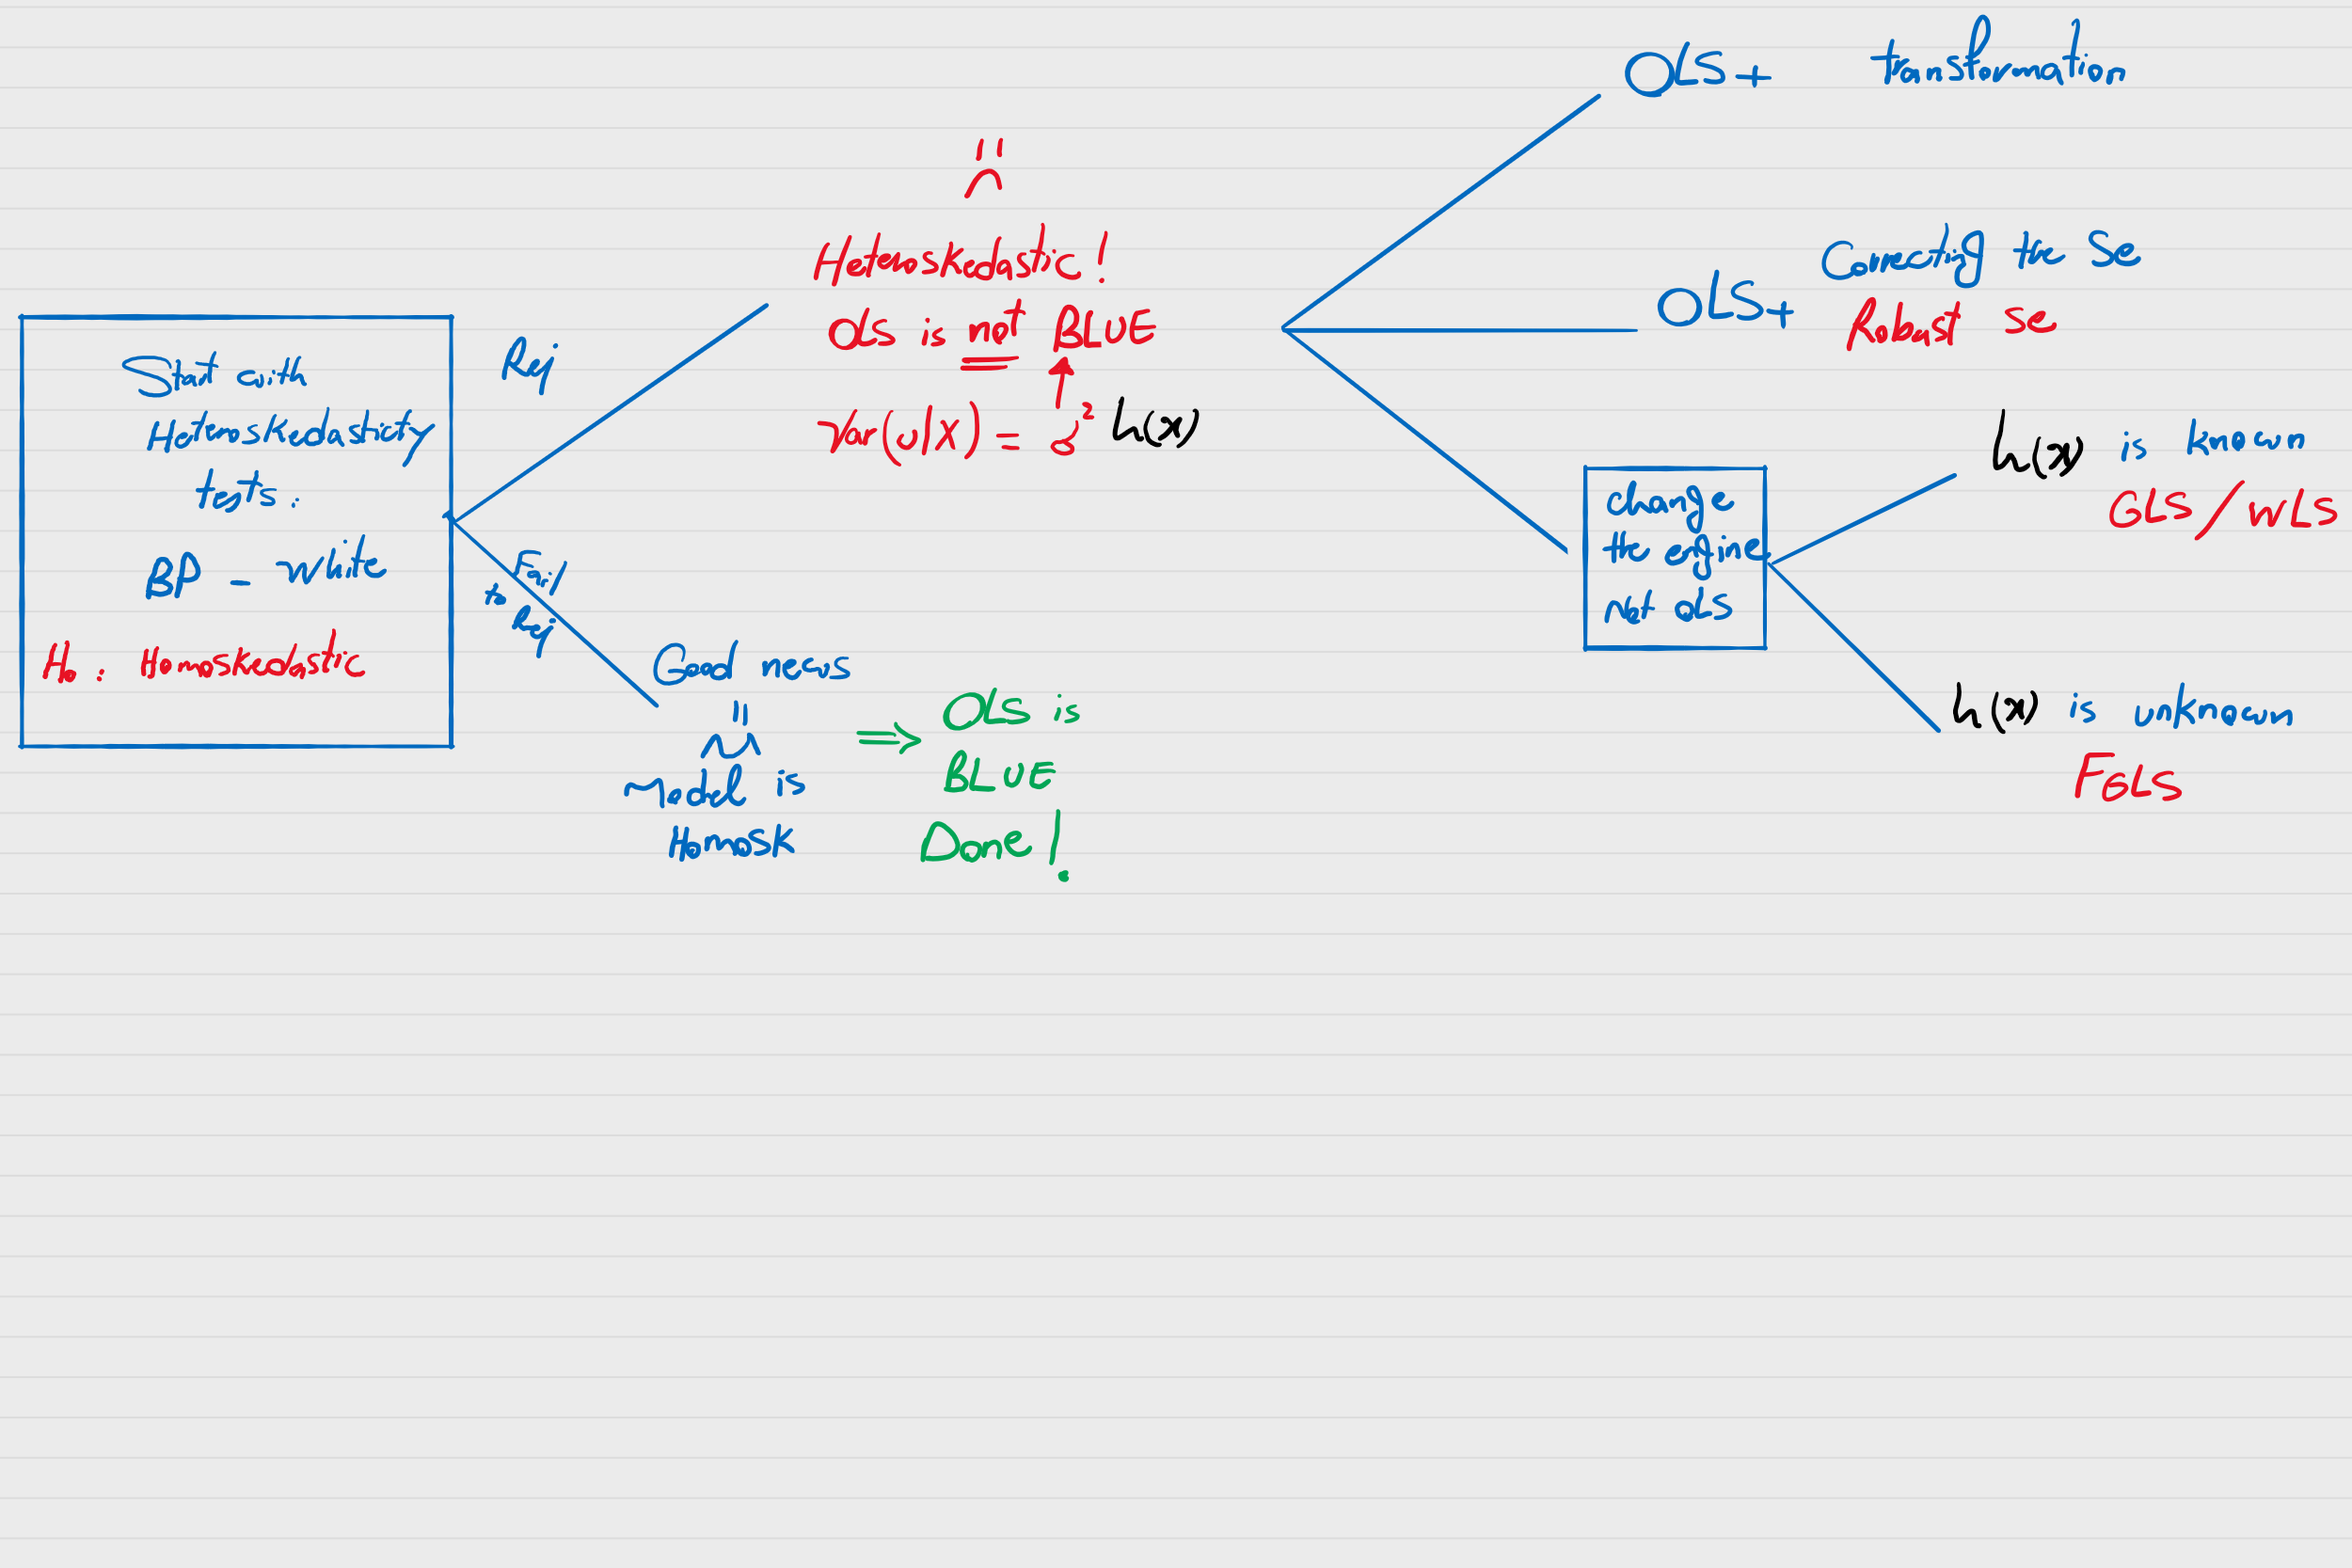 Start with
Heteroskedasticity
tests.
BP - White
H₀: Homoskedastic
Rej
Fail
to
Rej
Heteroskedastic!
OLS is not BLUE
Var(u|X) = σ² h(x)
Good news
model is
Homosk
⇒ OLS is
BLUE
Done!
OLS + transformation
OLS + Correcting the se
Robust se
change
the engine
not ols
h(x) is known
GLS/WLS
h(x) is unknown
FGLS